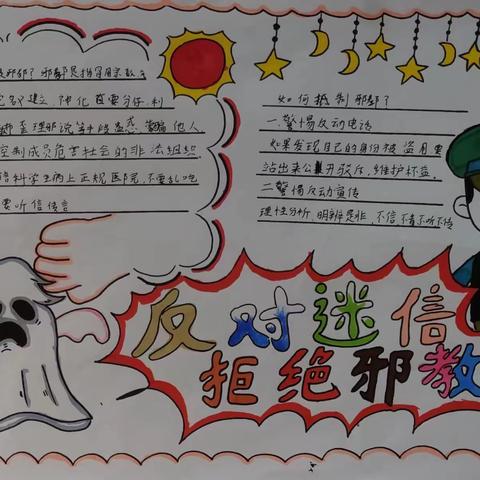 邪教？邪教是指冒用宗教名
建立、神化首要分子,利
歪理邪说等手段蛊惑、蒙骗他人,
控制成员危害社会的非法组织
科学生病上正规医院,不要乱吃
要听信传言
如何抵制邪教？
一.警惕反动电话
如果发现自己的身份被盗用要
站出来公开驳斥,维护权益.
二警惕反动宣传
理性分析、明辨是非、不信不看不听不传
反对迷信
拒绝邪教